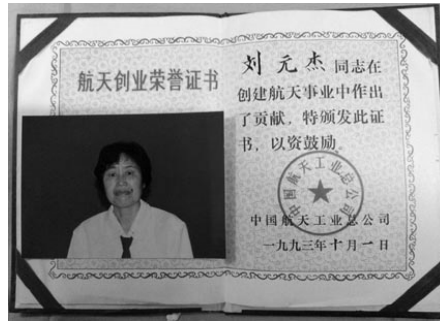 航天创业荣誉证书
刘元杰 同志在
创建航天事业中作出
了贡献，特颁发此证
书，以资鼓励。
中国航天工业总公司
中国航天工业总公司
一九九三年十月一日